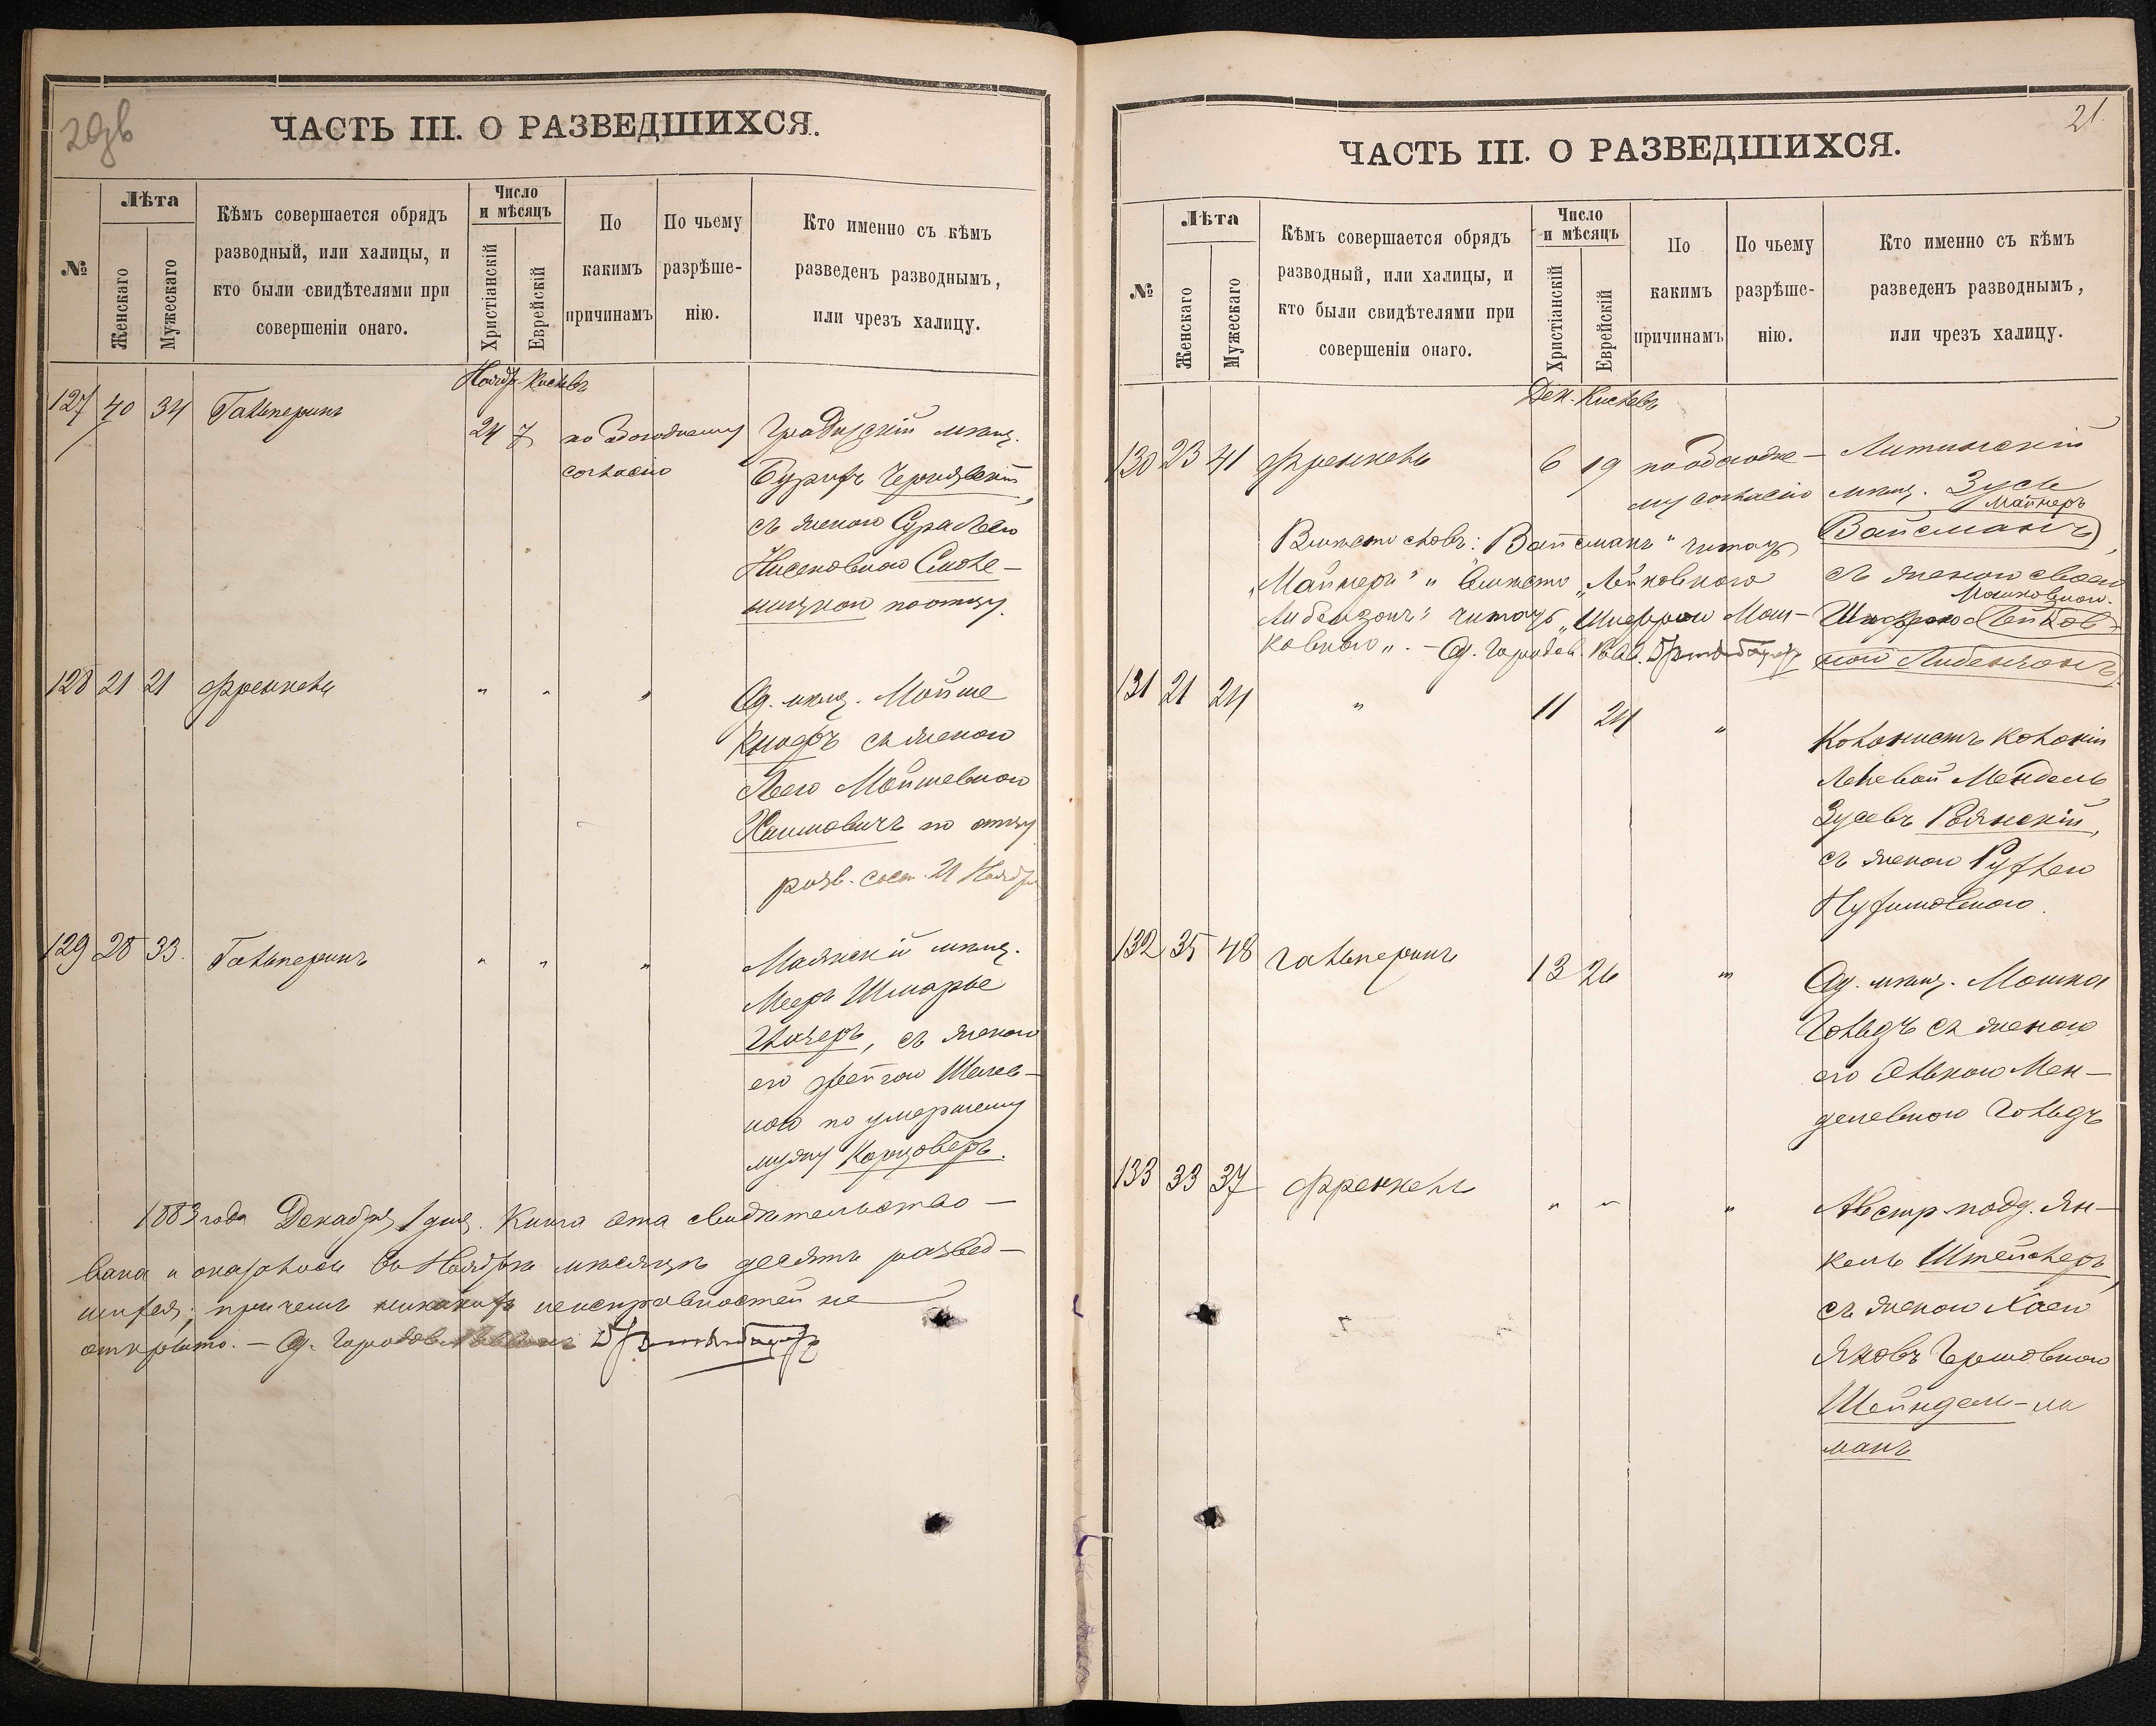 20дв
ЧАСТЬ III. О РАЗВЕДШИХСЯ.
№
Лѣта
Женскаго
Мужескаго
Кѣмъ совершается обрядъ
разводный, или халицы, и
кто были свидѣтелями при
совершеніи онаго.
Число
и мѣсяцъ
Христіанскій
Еврейскій
По
какимъ
причинамъ
По чьему
разрѣше-
нію.
Кто именно съ кѣмъ
разведенъ разводнымъ,
или чрезъ халицу.
Ноябр. Кислевъ
127 40 34 Гальперинъ 24 7 по обоюдному
согласію
мѣщ.
Чернявскій,
съ женою Сура Лею
Нисеновною Смоле-
по отцу.
128 21 21 Френкель " " "
Од. мѣщ. Мойше
съ женою
Леею Мойшевною
Хаимовичъ по отцу
разв. сост. 21 Ноября
129 28 33. Гальперинъ " " "
Маякскій мѣщ.
Меер Шмарье
съ женою
его Фейгою
ною по умершему
мужу Карцоверъ.
1883 года Декабря 1 дня. Книга эта свидѣтельство-
вана и оказалось въ Ноябрѣ мѣсяцѣ десять развед-
шихся, при чемъ никакихъ неисправностей не
открыто. – Од. Городов.
21.
ЧАСТЬ III. О РАЗВЕДШИХСЯ.
№
Лѣта
Женскаго
Мужескаго
Кѣмъ совершается обрядъ
разводный, или халицы, и
кто были свидѣтелями при
совершеніи онаго.
Число
и мѣсяцъ
Христіанскій
Еврейскій
По
какимъ
причинамъ
По чьему
разрѣше-
нію.
Кто именно съ кѣмъ
разведенъ разводнымъ,
или чрезъ халицу.
Дек. Кислевъ
130 23 41 Френкель 6 19 по обоюдно-
му согласію
Литинскій
мѣщ. Зусь
Майнеръ
Вайсманъ,
съ женою своею
Мошковною.
Шифрою Лейков-
ною Либензонъ.
Вмѣсто словъ: "Вайсманъ" читать
"Майнеръ" и вмѣсто "Лейковною
Либензонъ" читать "Шифрою Мош-
ковною". – Од. Городов. Рав.
131 21 24 " 11 24 "
Колонистъ колоніи
Мендель
Зусевъ
съ женою Рухлею
Нухимовною.
132 35 48 Гальперинъ 13 26 "
Од. мѣщ. Мошка
Гольдъ съ женою
его Элькою Мен-
делевною Гольдъ
133 33 37 Френкель " " "
Австр. подд. Ян-
кель
съ женою Хаею
Яковъ Гершовною
Шейндель-ли
манъ